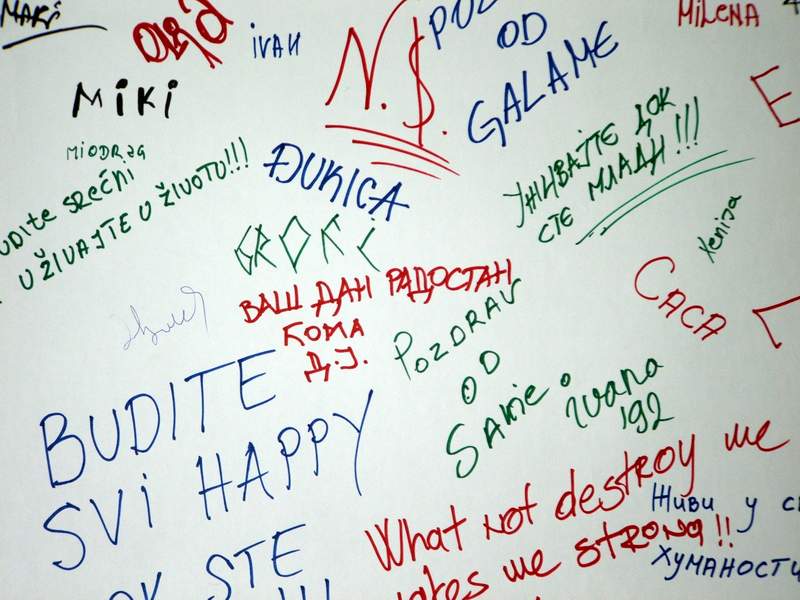 MAKI
OLJA
IVAN
N.$.
POZ
OD
GALAME
MILENA
MIKI
MIODRAG
ĐUKICA
УЖИВАЈТЕ ДОК
СТЕ МЛАДИ!!!
UDITE SREĆNI
UŽIVAJTE U ŽIVOTU!!!
Xenija
ВАШ ДАН РАДОСТАН
КОМА
Д.Ј.
САСА
POZDRAV
OD
SANJE
ivana
'92
BUDITE
SVI HAPPY
OK STE
What not destroy me
akes me STRONG!!
Живи у с
ХУМАНОСТИ